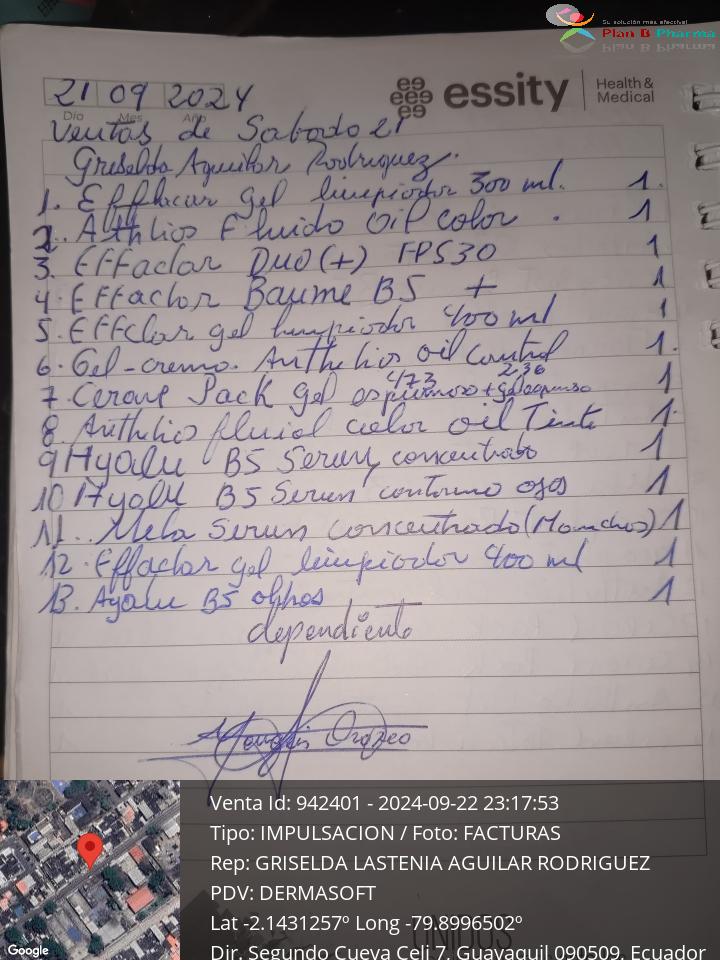 Su solución más efectiva!
Plan B Pharma
21 09 2024
essity
Health &
Medical
Día Mes Año
Ventas de Sabado 21
Griselda Aguilar Rodriguez.
1. Efflacar gel limpiador 300 ml. 1.
2. Athlios Fluido oil color . 1
3. Effaclar Duo(+) FPS30 1
4. Effaclor Baume B5 + 1
5. Effclar gel limpiador 400 ml 1
6. Gel-crema. Anthelios oil control 1.
473 236
7. Cerave Pack gel espumoso + gel espumoso 1
8. Anthelios fluid color oil Tinte 1.
9 Hyalu B5 Serum concentrado 1
10 Hyalu B5 Serum contorno ojos 1
11.. Mela Serum concentrado (Manchas) 1
12. Effaclar gel limpiador 400 ml 1
13. Ayalu B5 1
dependiente
Orozco
Venta Id: 942401 - 2024-09-22 23:17:53
Tipo: IMPULSACION / Foto: FACTURAS
Rep: GRISELDA LASTENIA AGUILAR RODRIGUEZ
PDV: DERMASOFT
Lat -2.1431257º Long -79.8996502º
Dir. Segundo Cueva Celi 7, Guayaquil 090509, Ecuador
Google